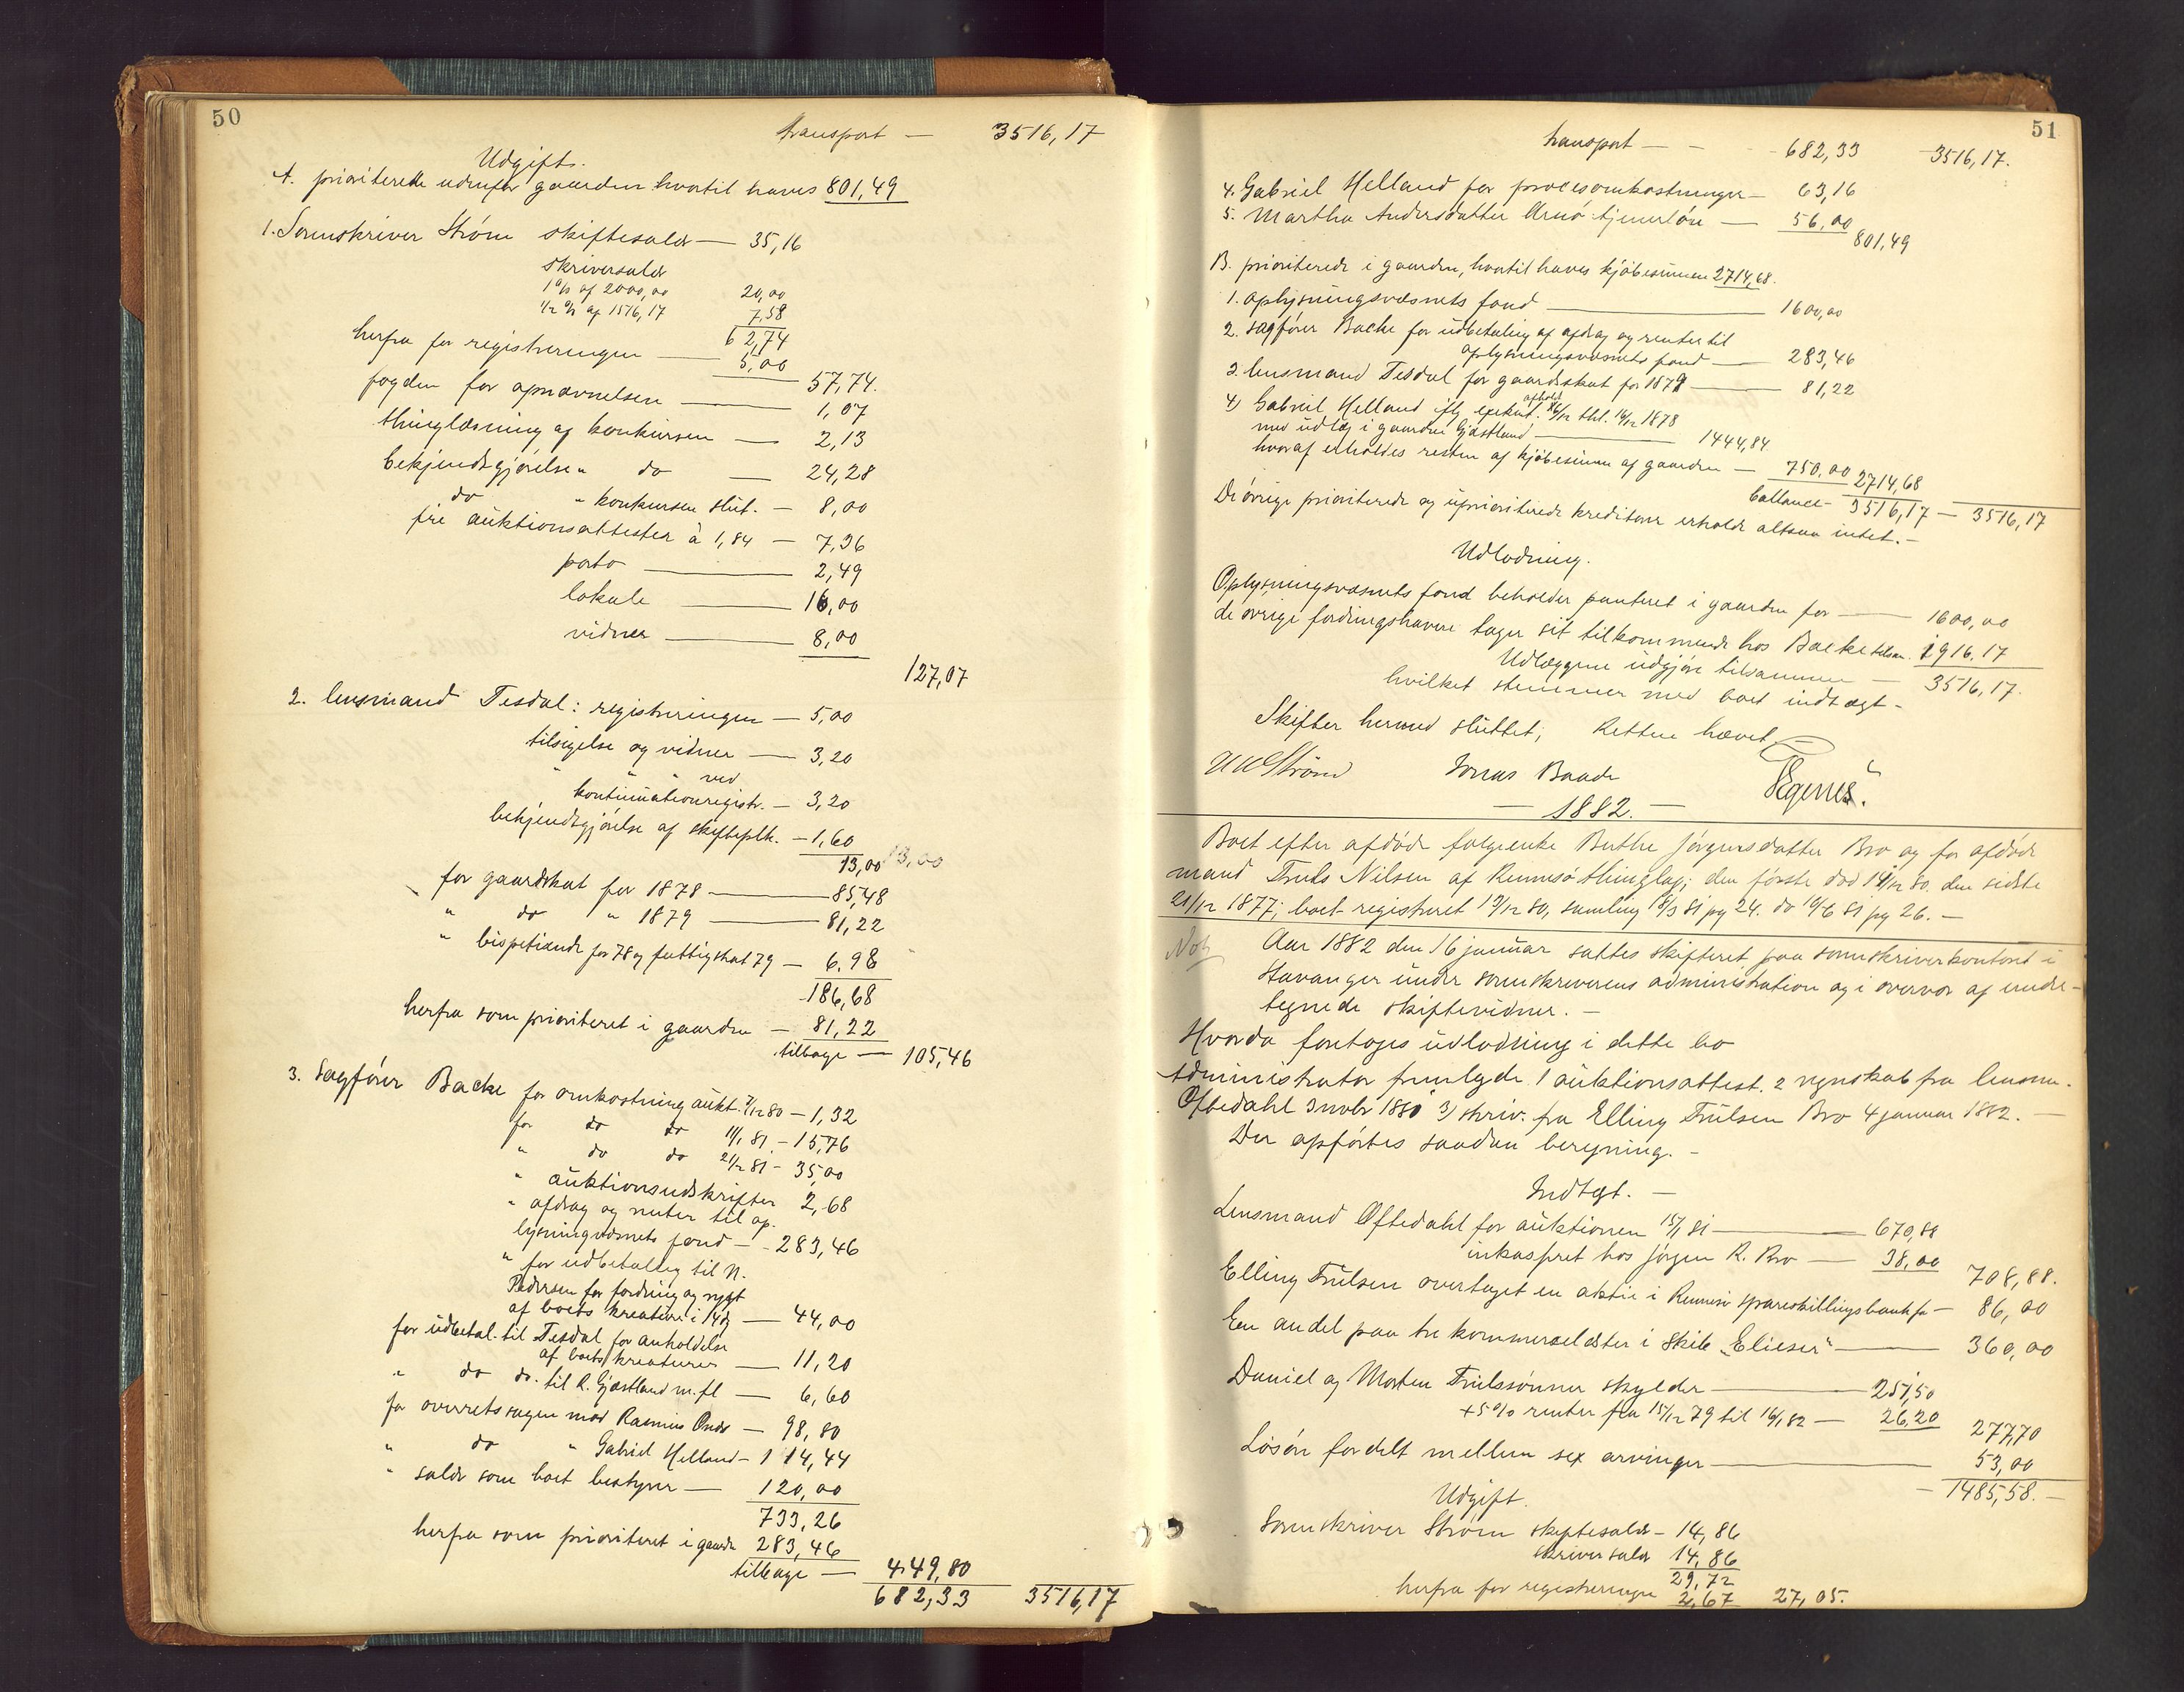 50
transport — 3516,17
Udgift.
A. prioriterede udenfor gaarden hvortil haves 801,49
1. Sorenskriver Strøm skiftesalær — 35,16
skriversalær
1 % af 2000,00 20,00
1/2 % af 1516,17 7,58
62,74
herfra for registreringen — 5,00
57,74.
fogden for opnævnelsen — 1,07
thinglæsning af konkursen — 2,13
bekjendtgjørelse " do — 24,28
do " konkursens slut. — 8,00
fire auktionsattester à 1,84 — 7,36
porto — 2,49
lokale — 16,00
vidner — 8,00
127,07
2. lensmand Tesdal: registreringen — 5,00
tilsigelse og vidner — 3,20
" " ved
kontinuationregistr. — 3,20
bekjendtgjørelse af skifteplk. — 1,60
13,00 13,00
for gaardskat for 1878 — 85,48
" do " 1879 — 81,22
" bispetiende for 78 og fattigskat 79 — 6,98
186,68
herfra som prioriteret i gaarden — 81,22
tilbage — 105,46
3. Sagfører Backe for omkostning aukt. 7/12 80 — 1,32
for do do 11/1 81 — 15,76
" do do 21/2 81 — 35,00
" auktionsudskrifter 2,68
" afdrag og renter til op-
lysningvæsnets fond — 283,46
" for udbetaling til N.
Pedersen for fordring og røgt
af boets kreaturer i 14 dg — 44,00
for udbetal. til Tesdal for anholdelse
af boets kreaturer — 11,20
" do do. til R. Gjæstland m. fl — 6,60
for overretssagen mod Rasmus — 98,80
" do " Gabriel Helland — 114,44
" salær som boet bestyrer — 120,00
733,26
herfra som prioriteret i gaarden 283,46
tilbage — 449,80
682,33 3516,17
51
transport — 682,33 3516,17.
4. Gabriel Helland for procesomkostninger — 63,16
5. Martha Andersdatter Arnø tjenerløn — 56,00
801,49
B. prioriterede i gaarden, hvortil haves kjøbesummen 2714,68.
1. oplysningsvæsnets fond — 1600,00
2. sagfører Backe for udbetaling af afdrag og renter til
oplysningsvæsnets fond — 283,46
3. lensmand Tesdal for gaardskat for 1879 — 81,22
4) Gabriel Helland iflg exekut. afholdt 6/12 thl. 14/12 1878
med udlæg i gaarden Gjæstland — 1444,84
hvoraf erholdes resten af kjøbesummen af gaarden — 750,00 2714,68
ballance — 3516,17 — 3516,17
De øvrige prioriterede og uprioriterede kreditorer erholde altsaa intet. —
Udlodning.
Oplysningsvæsnets fond beholder panteret i gaarden for — 1600,00
de øvrige fordringshavere tager sit tilkommende hos Backe tilsm. 1916,17
Udlæggene udgjøre tilsammen — 3516,17.
hvilket stemmer med boets indtægt —
Skiftet hermed sluttet; Retten hævet
Strøm Jonas Baade
— 1882. —
Boet efter afdøde folgeenke Berthe Jørgensdatter Bro og før afdøde
mand Truls Nilsen af Rennesø thinglag; den første død 14/12 80. den sidste
21/12 1877; boet registreret 19/12 80, samling 18/3 81 pg 24. do 10/6 81 pg 26. —
Aar 1882 den 16 januar sattes skifteret paa sorenskriverkontoret i
Stavanger under sorenskriverens administration og i overvær af under-
tegnede skiftevidner. —
Hvorda foretoges udlodning i dette bo
Administrator fremlagde 1 auktionsattest. 2 regnskab fra lensm.
Oftedahl 3 novbr 1881 3) skriv. fra Elling Trulsen Bro 4 januar 1882. —
Der opførtes saadan beregning. —
Indtægt. —
Lensmand Oftedahl for auktionen 15/1 81 — 670,88
inkasseret hos Jørgen R. Bro — 38,00
708,88.
Elling Trulsen overtaget en aktie i Rennesø spareskillingsbank for — 86,00
En andel paa tre kommercelæster i skib „Elieser" — 360,00
Daniel og Morten Trulssønner skylder — 251,50
+ 5 % renter fra 15/12 79 til 16/1 82 — 26,20
277,70
Løsøre fordelt mellem sex arvinger — 53,00
1485,58. —
Udgift.
Sorenskriver Strøm skiftesalær — 14,86
skriversalær 14,86
29,72
herfra for registreringen 2,67 27,05.